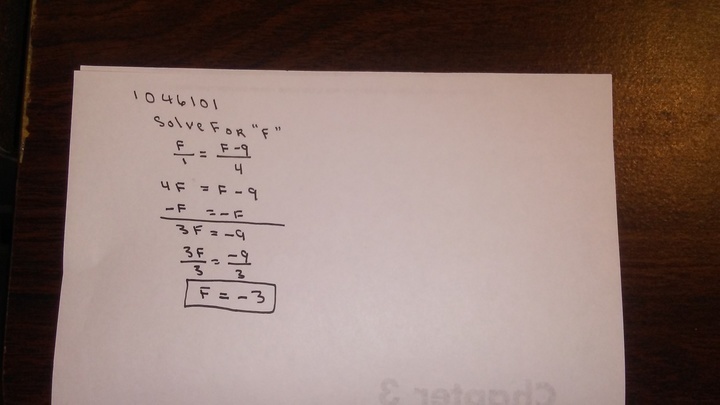 1046101
Solve FOR "F"
F/1 = F-9/4
4F = F-9
-F = -F
3F = -9
3F/3 = -9/3
F = -3
Chapter 3